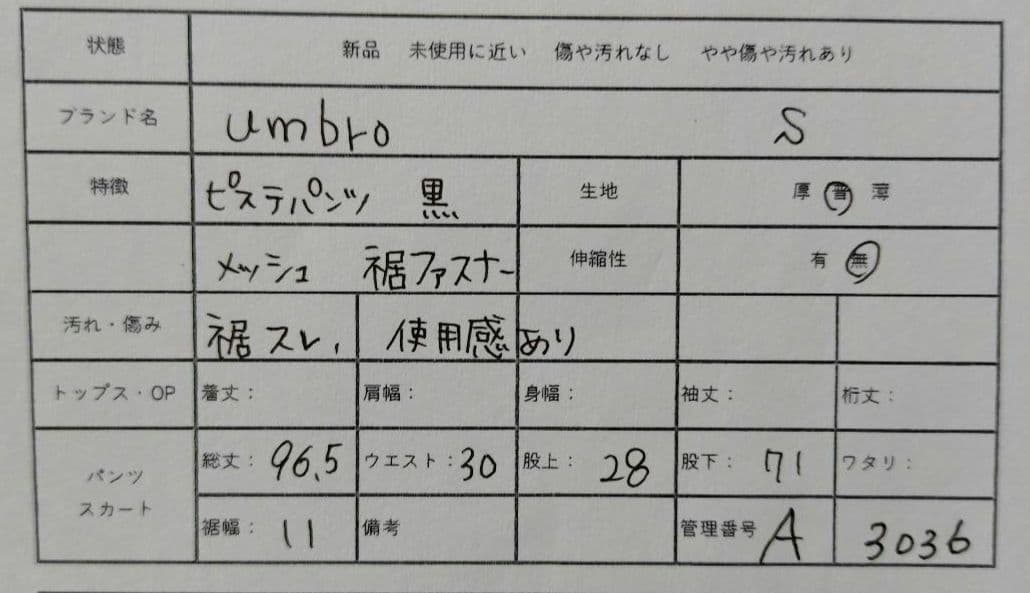 状態 新品 未使用に近い 傷や汚れなし やや傷や汚れあり
ブランド名 umbro S
特徴 ピステパンツ 黒 生地 厚 普 薄
メッシュ 裾ファスナー 伸縮性 有 無
汚れ・傷み 裾スレ、 使用感あり
トップス・OP 着丈: 肩幅: 身幅: 袖丈: 裄丈:
パンツ スカート 総丈: 96.5 ウエスト: 30 股上: 28 股下: 71 ワタリ:
裾幅: 11 備考 管理番号 A 3036